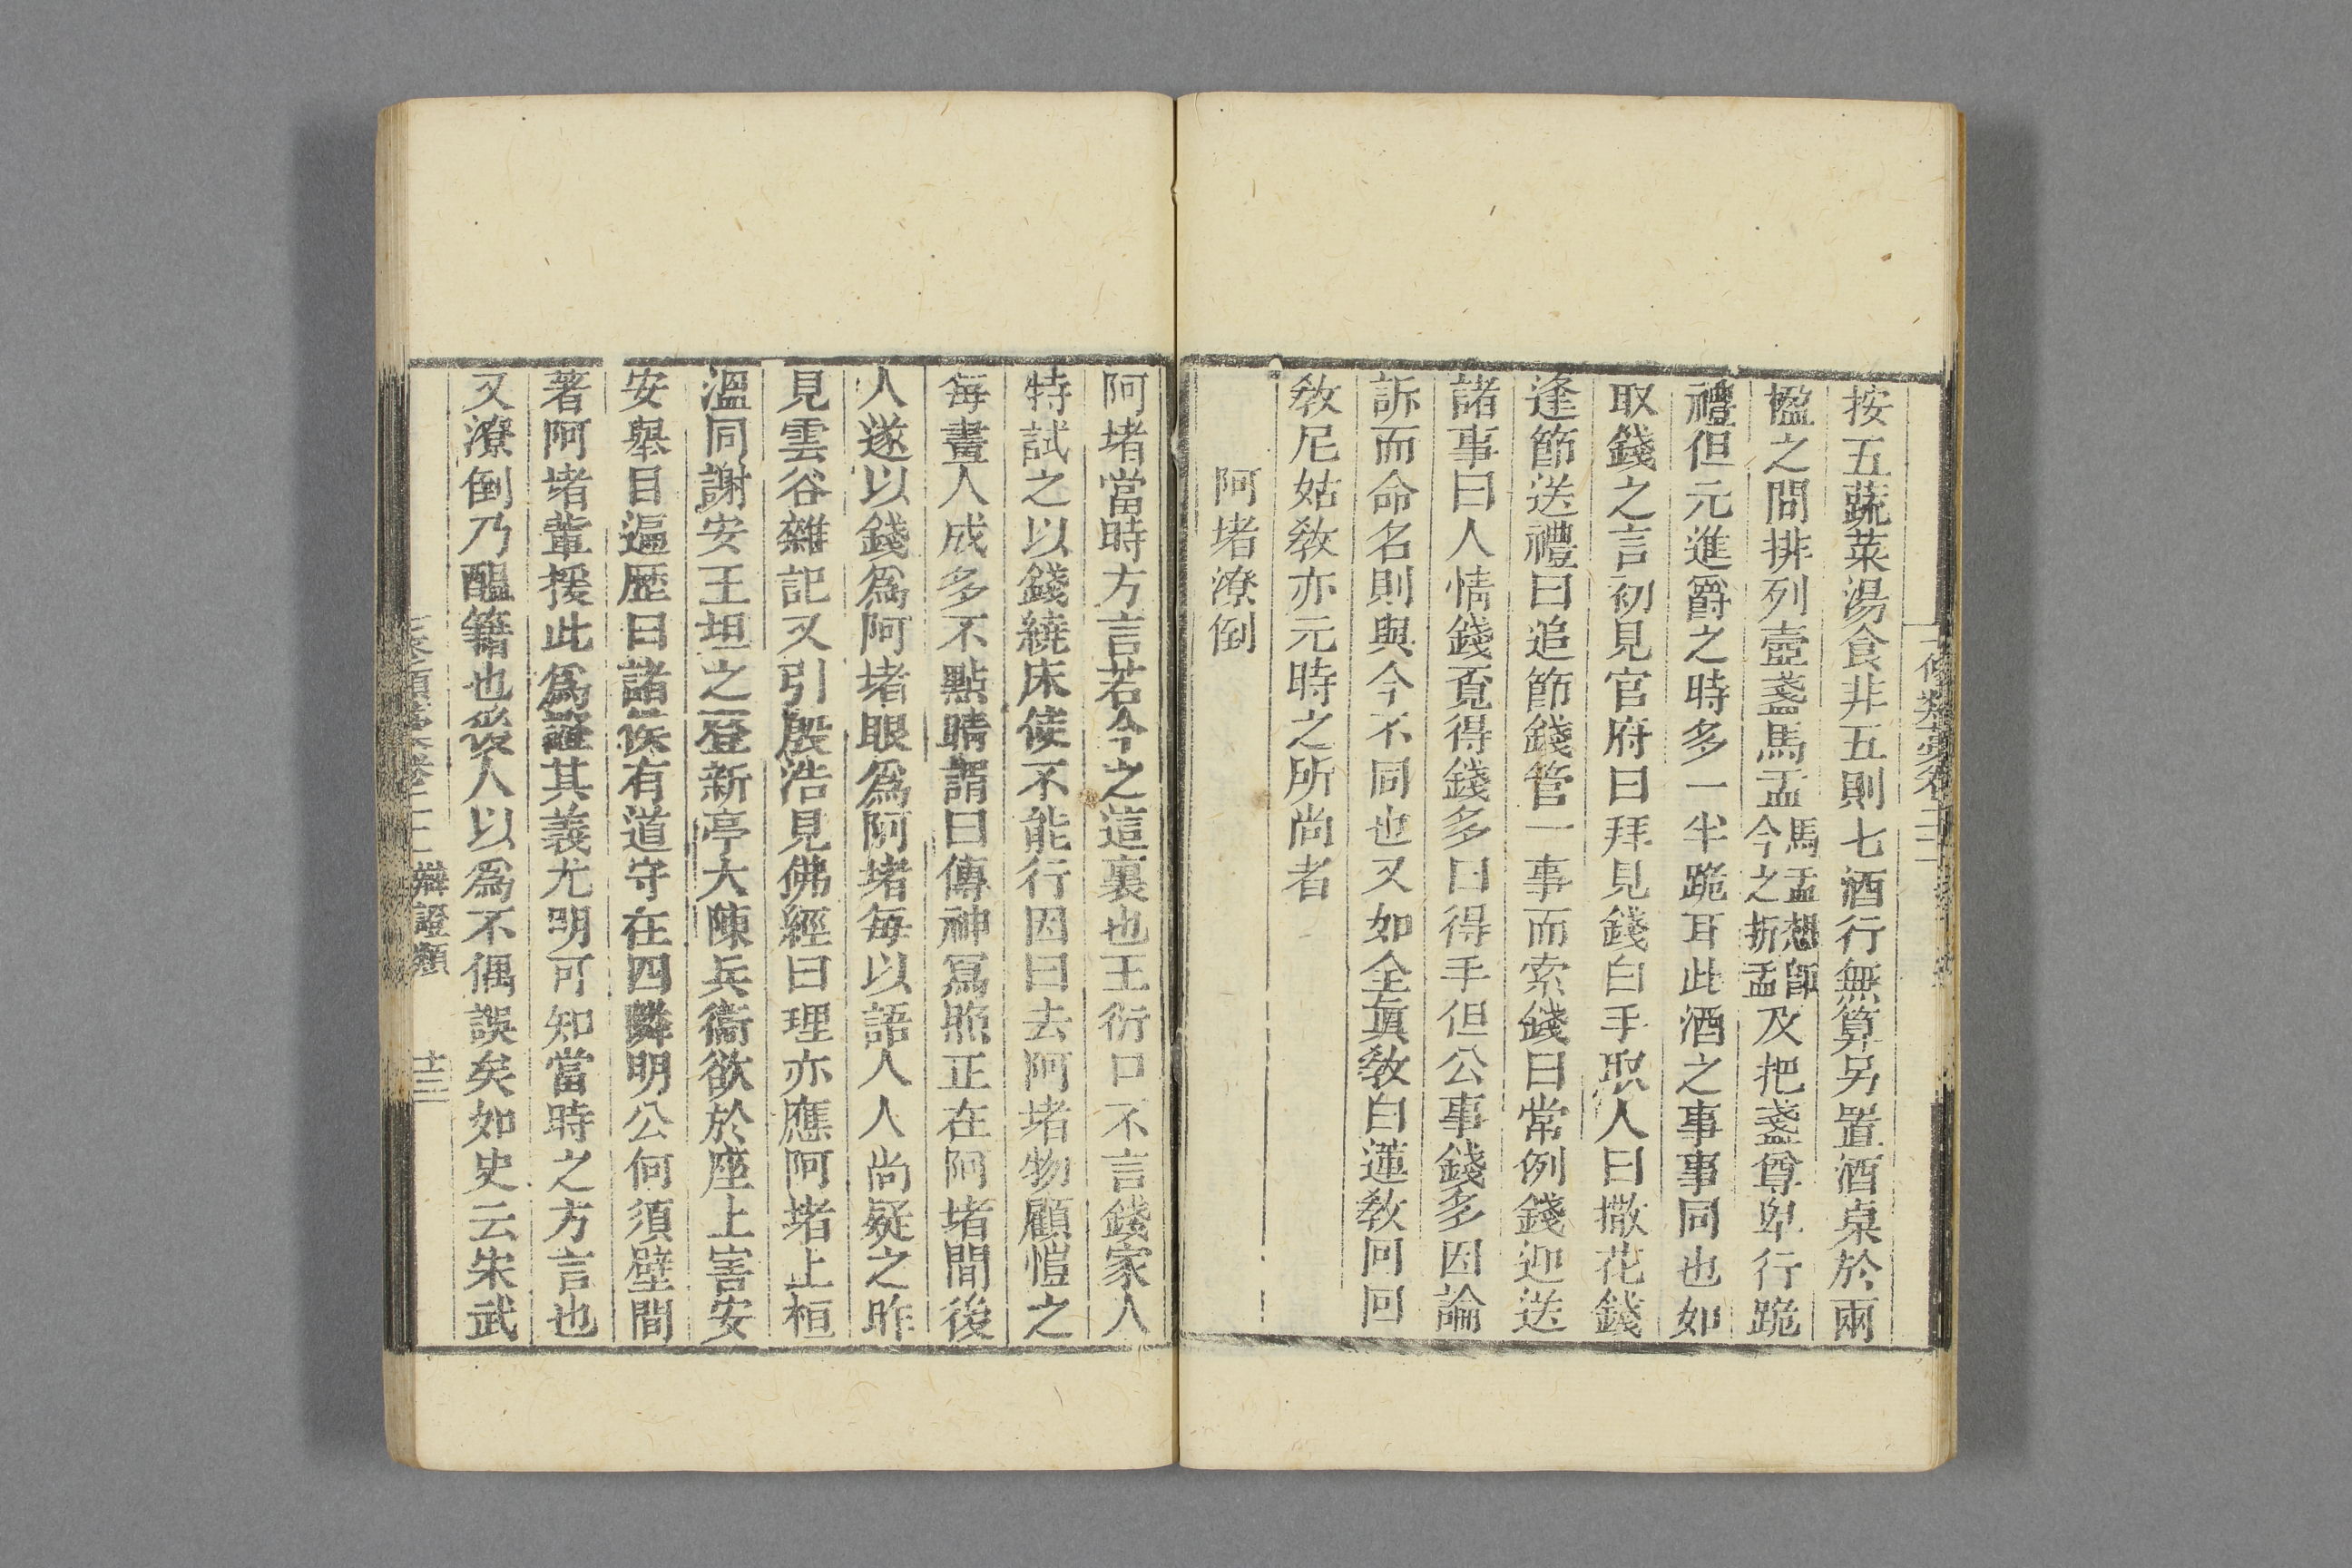 按五蔬菜湯食非五則七酒行無算另置酒桌於兩
楹之間排列壺盞馬盂馬盂想卽今之折盂及把盞尊卑行跪
禮但元進爵之時多一半跪耳此酒之事事同也如
取錢之言初見官府曰拜見錢白手取人曰撒花錢
逢節送禮曰追節錢管一事而索錢曰常例錢迎送
諸事曰人情錢覔得錢多曰得手但公事錢多因論
訴而命名則與今不同也又如全眞敎白蓮敎回回
敎尼姑敎亦元時之所尚者
阿堵潦倒
阿堵當時方言若今之這裏也王衍口不言錢家人
特試之以錢繞床使不能行因曰去阿堵物顧愷之
每畫人成多不點睛謂曰傳神冩照正在阿堵間後
人遂以錢爲阿堵眼爲阿堵每以語人人尚疑之昨
見雲谷雜記又引殷浩見佛經曰理亦應阿堵上桓
溫同謝安王坦之登新亭大陳兵衞欲於座上害安
安舉目遍歷曰諸侯有道守在四隣明公何須壁間
著阿堵輩援此爲證其義尤明可知當時之方言也
又潦倒乃醞籍也後人以爲不偶誤矣如史云朱武
辯證類 十三